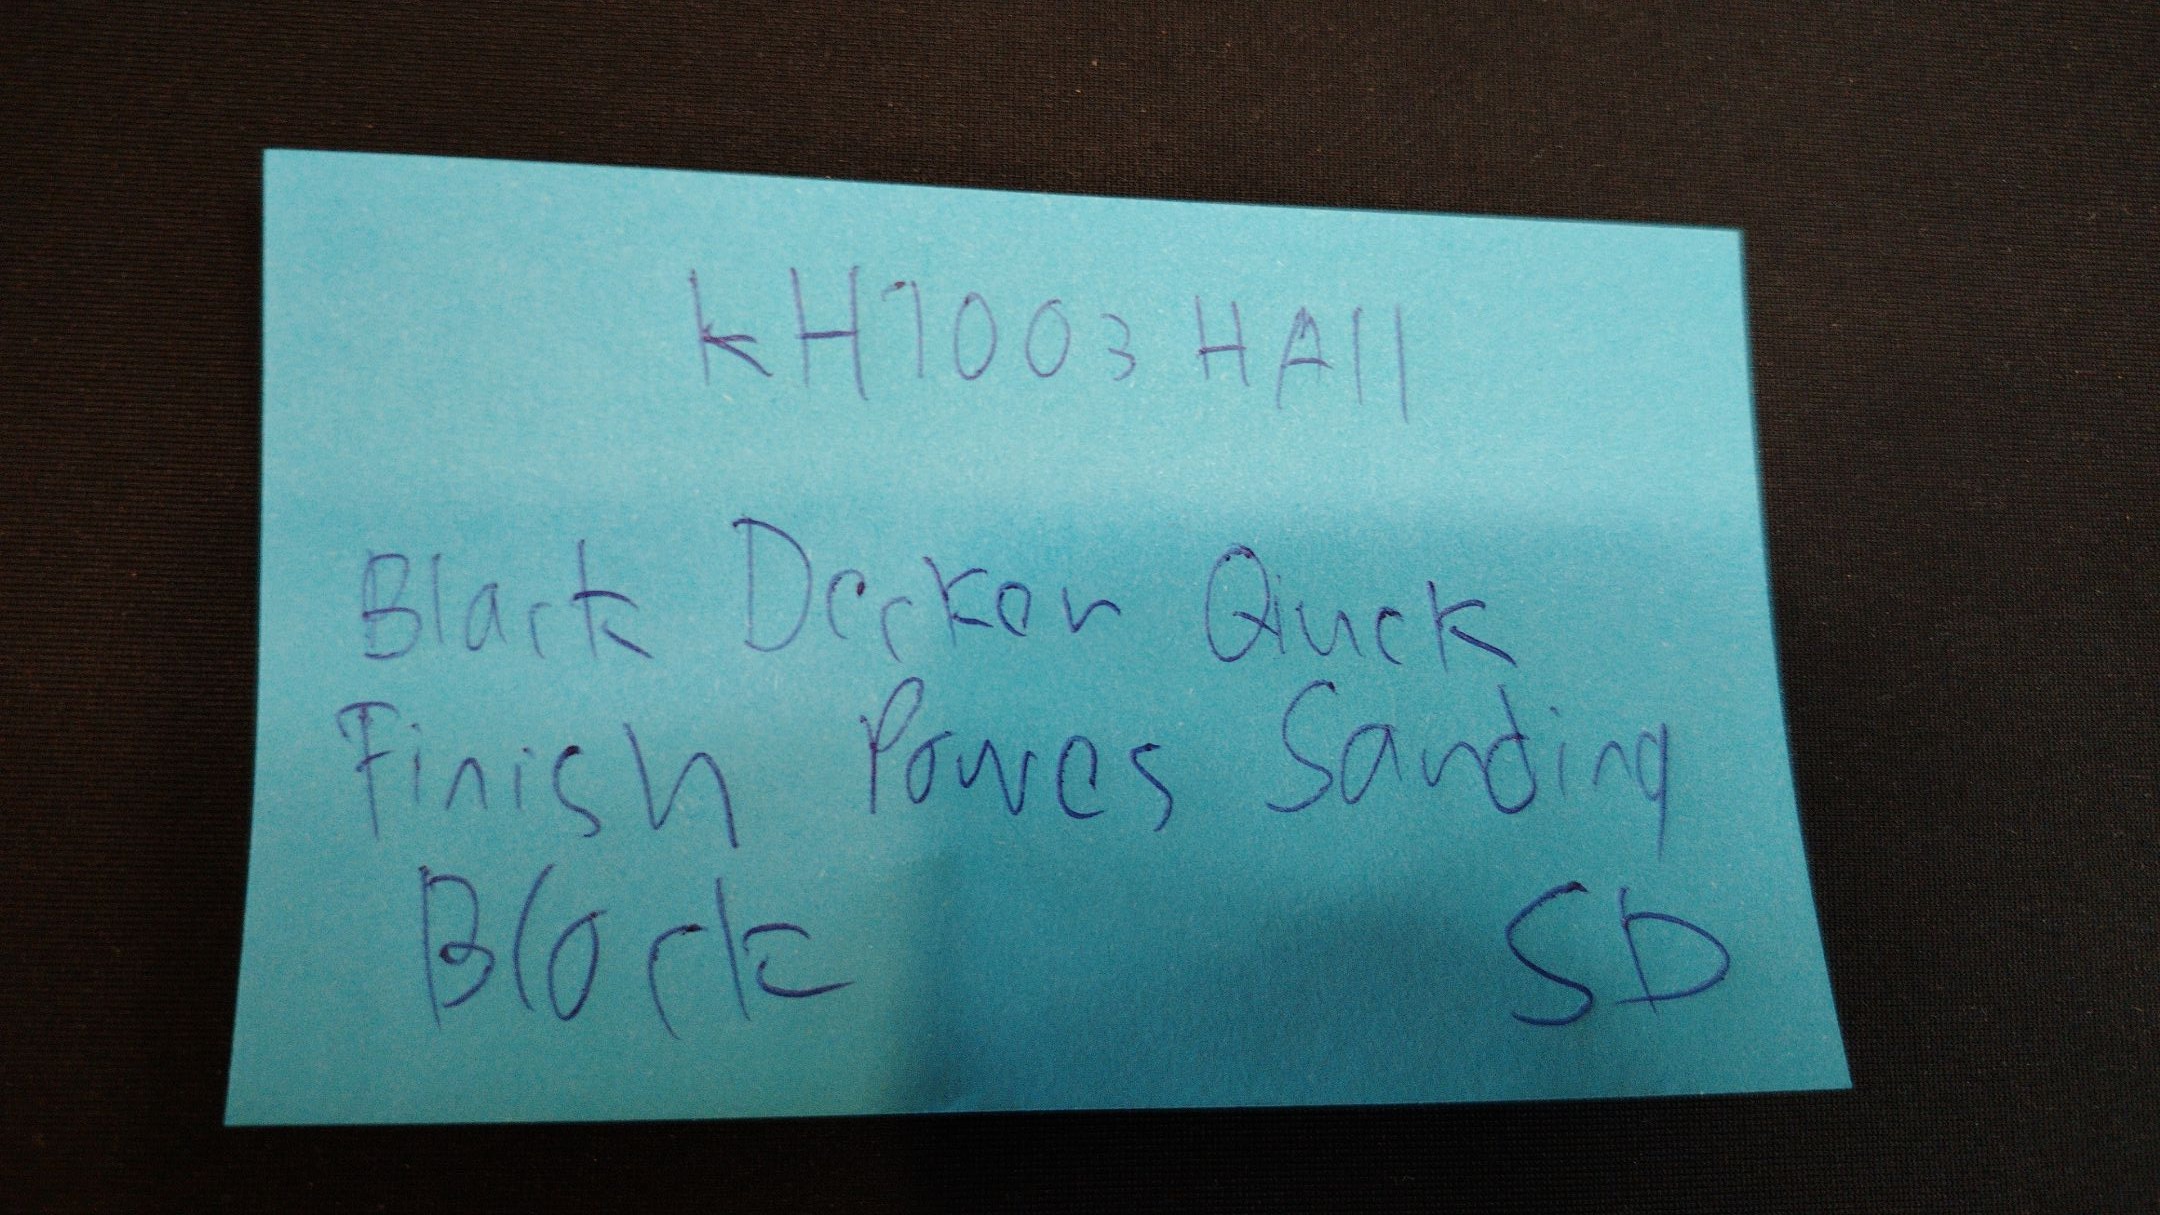 KH7003HA11
Black Decker Quick
Finish Power Sanding
Block SD